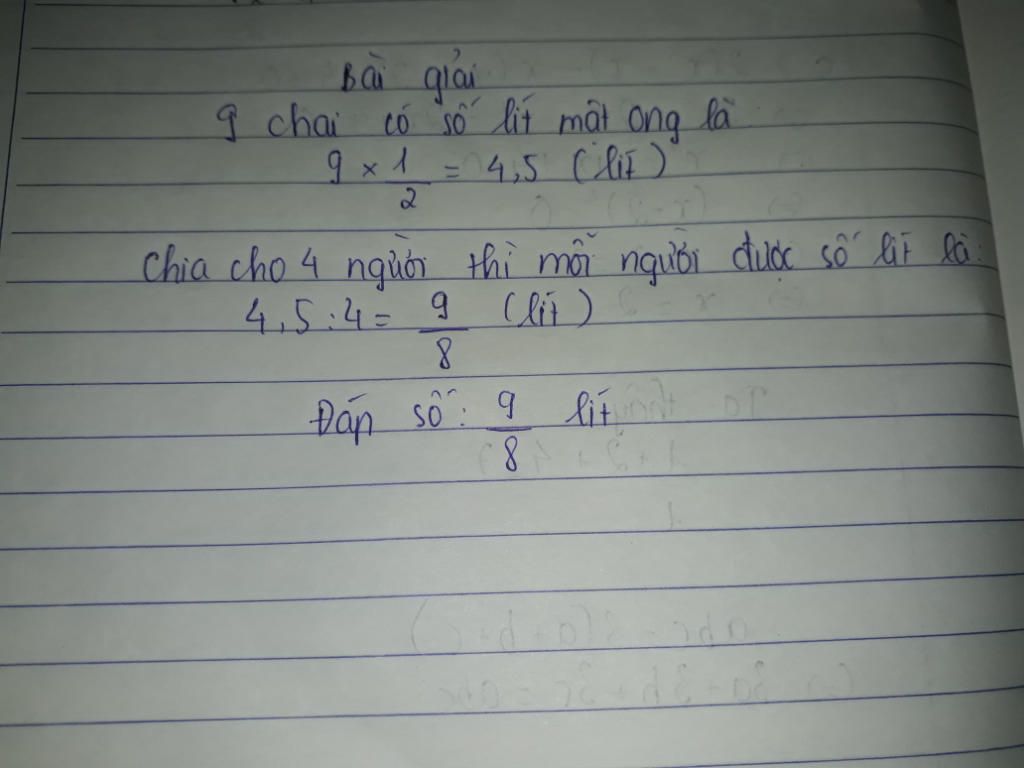 Bài giải
9 chai có số lít mật ong là
9 × 1/2 = 4,5 (lít)
Chia cho 4 người thì mỗi người được số lít là:
4,5 : 4 = 9/8 (lít)
Đáp số: 9/8 lít